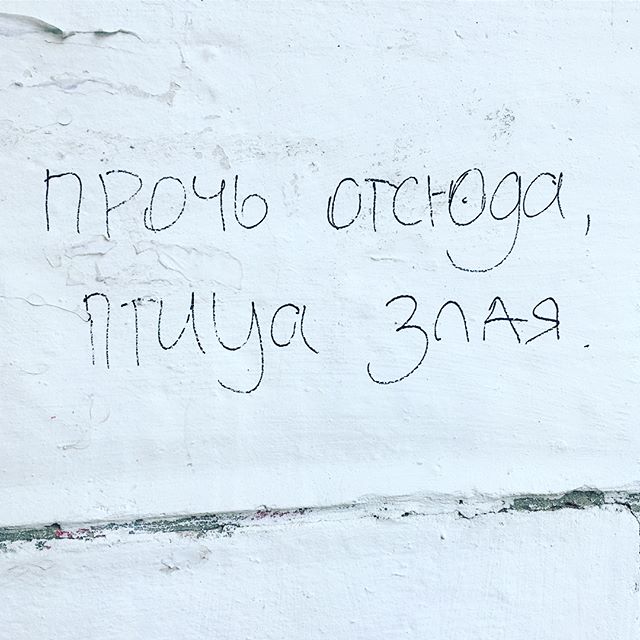 прочь отсюда,
птица злая.